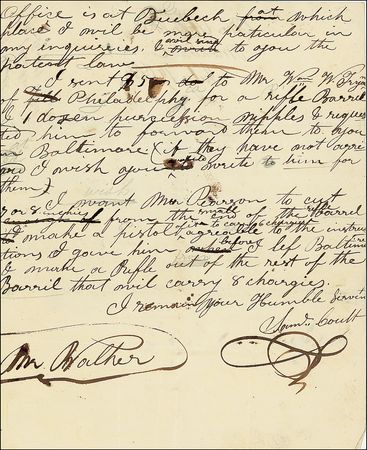 Office is at Quebeck from at which
place I will be more particular in
my inqueries. I will wright to you the
patent law.
I sent $50 to Mr. Wm W.
of Philadelphy for a rifle Barril
& 1 dosen purcussion nipples & reques
ted him to forward them to you
in Baltimore (if they have not arri
I wish you would write to him for
them)
I want Mr. Pearson to cut
7 or 8 inches from the small End of the rifle barril
& make a pistol, agreable to the instruc
tions I gave him before I lef Baltimore
& make a Rifle out of the rest of the
Barril that will carry 8 chargies.
I remain Your Humble Servin
Saml. Coult
Mr Walker